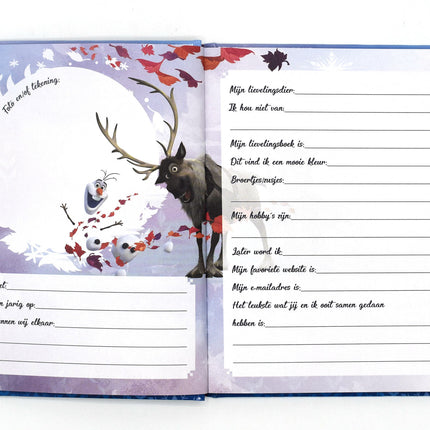 Foto en/of tekening:
et:
n jarig op:
nnen wij elkaar:
Mijn lievelingsdier:
Ik hou niet van:
Mijn lievelingsboek is:
Dit vind ik een mooie kleur:
Broertjes/zusjes:
Mijn hobby's zijn:
Later word ik:
Mijn favoriete website is:
Mijn e-mailadres is:
Het leukste wat jij en ik ooit samen gedaan
hebben is: